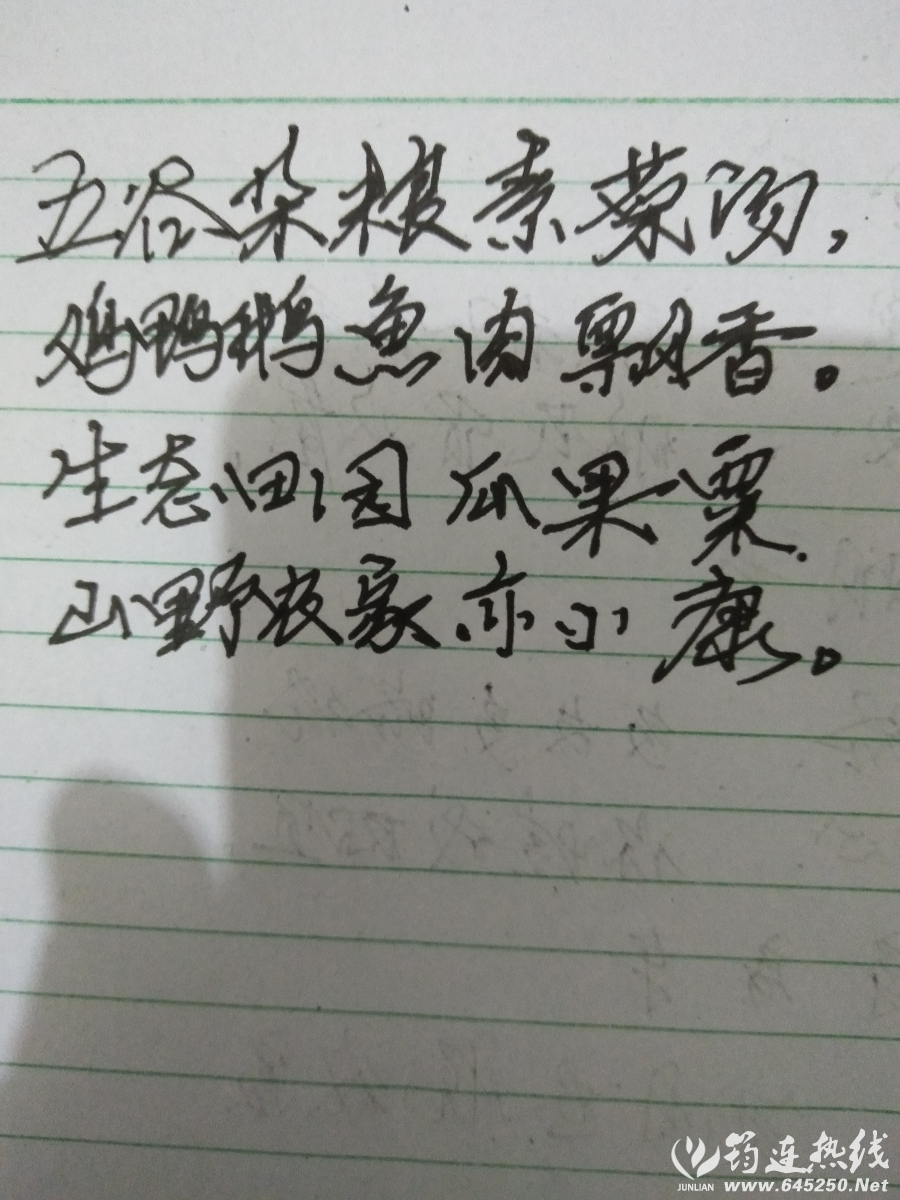 五谷杂粮素菜汤，
鸡鸭鹅魚肉飘香。
生态田园瓜果粟
山野农家亦小康。
筠连热线
JUNLIAN www.645250.Net